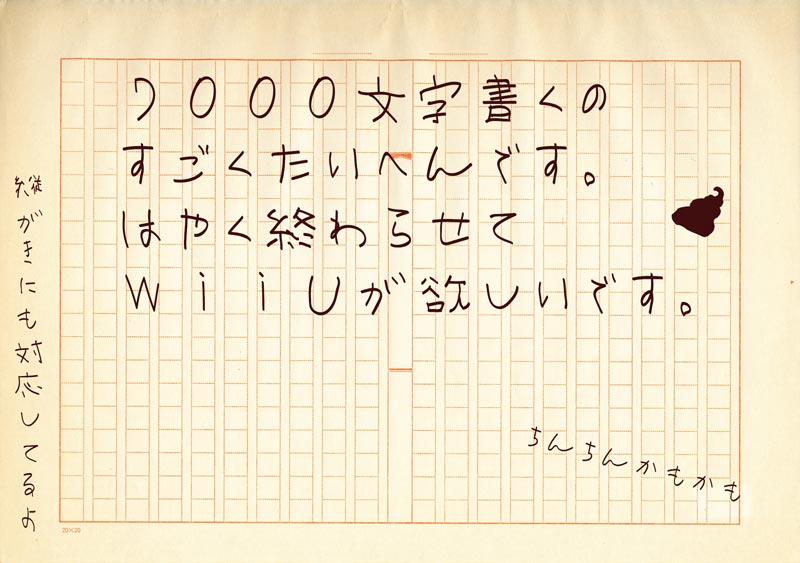 7000文字書くの
すごくたいへんです。
はやく終わらせて
WiiUが欲しいです。
縦がきにも対応してるよ
ちんちんかもかも
20×20